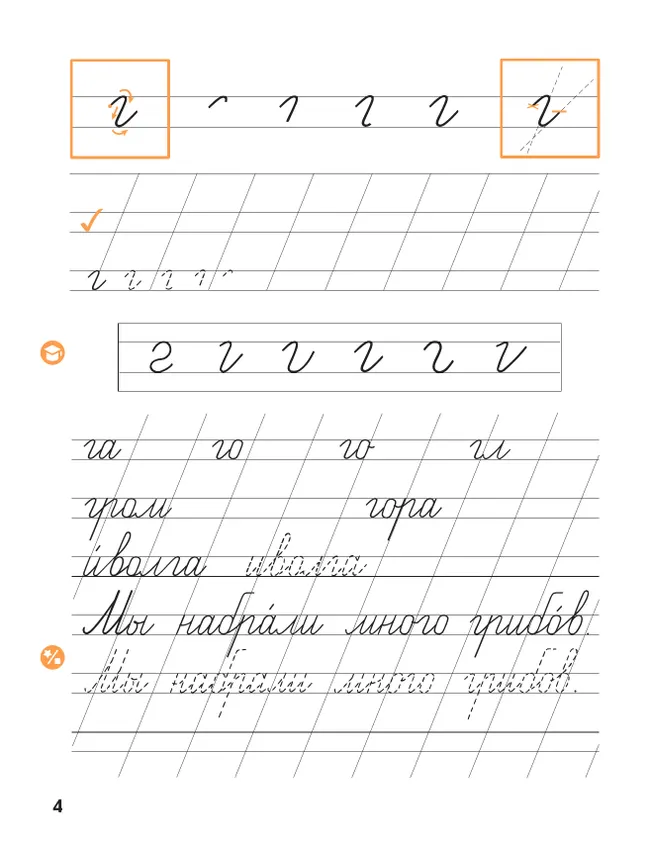 г г г г г
г г г г г
г г г г г г
га го го гл
гром гора
и́волга иволга
Мы набра́ли много грибо́в.
Мы набрали много грибов.
4